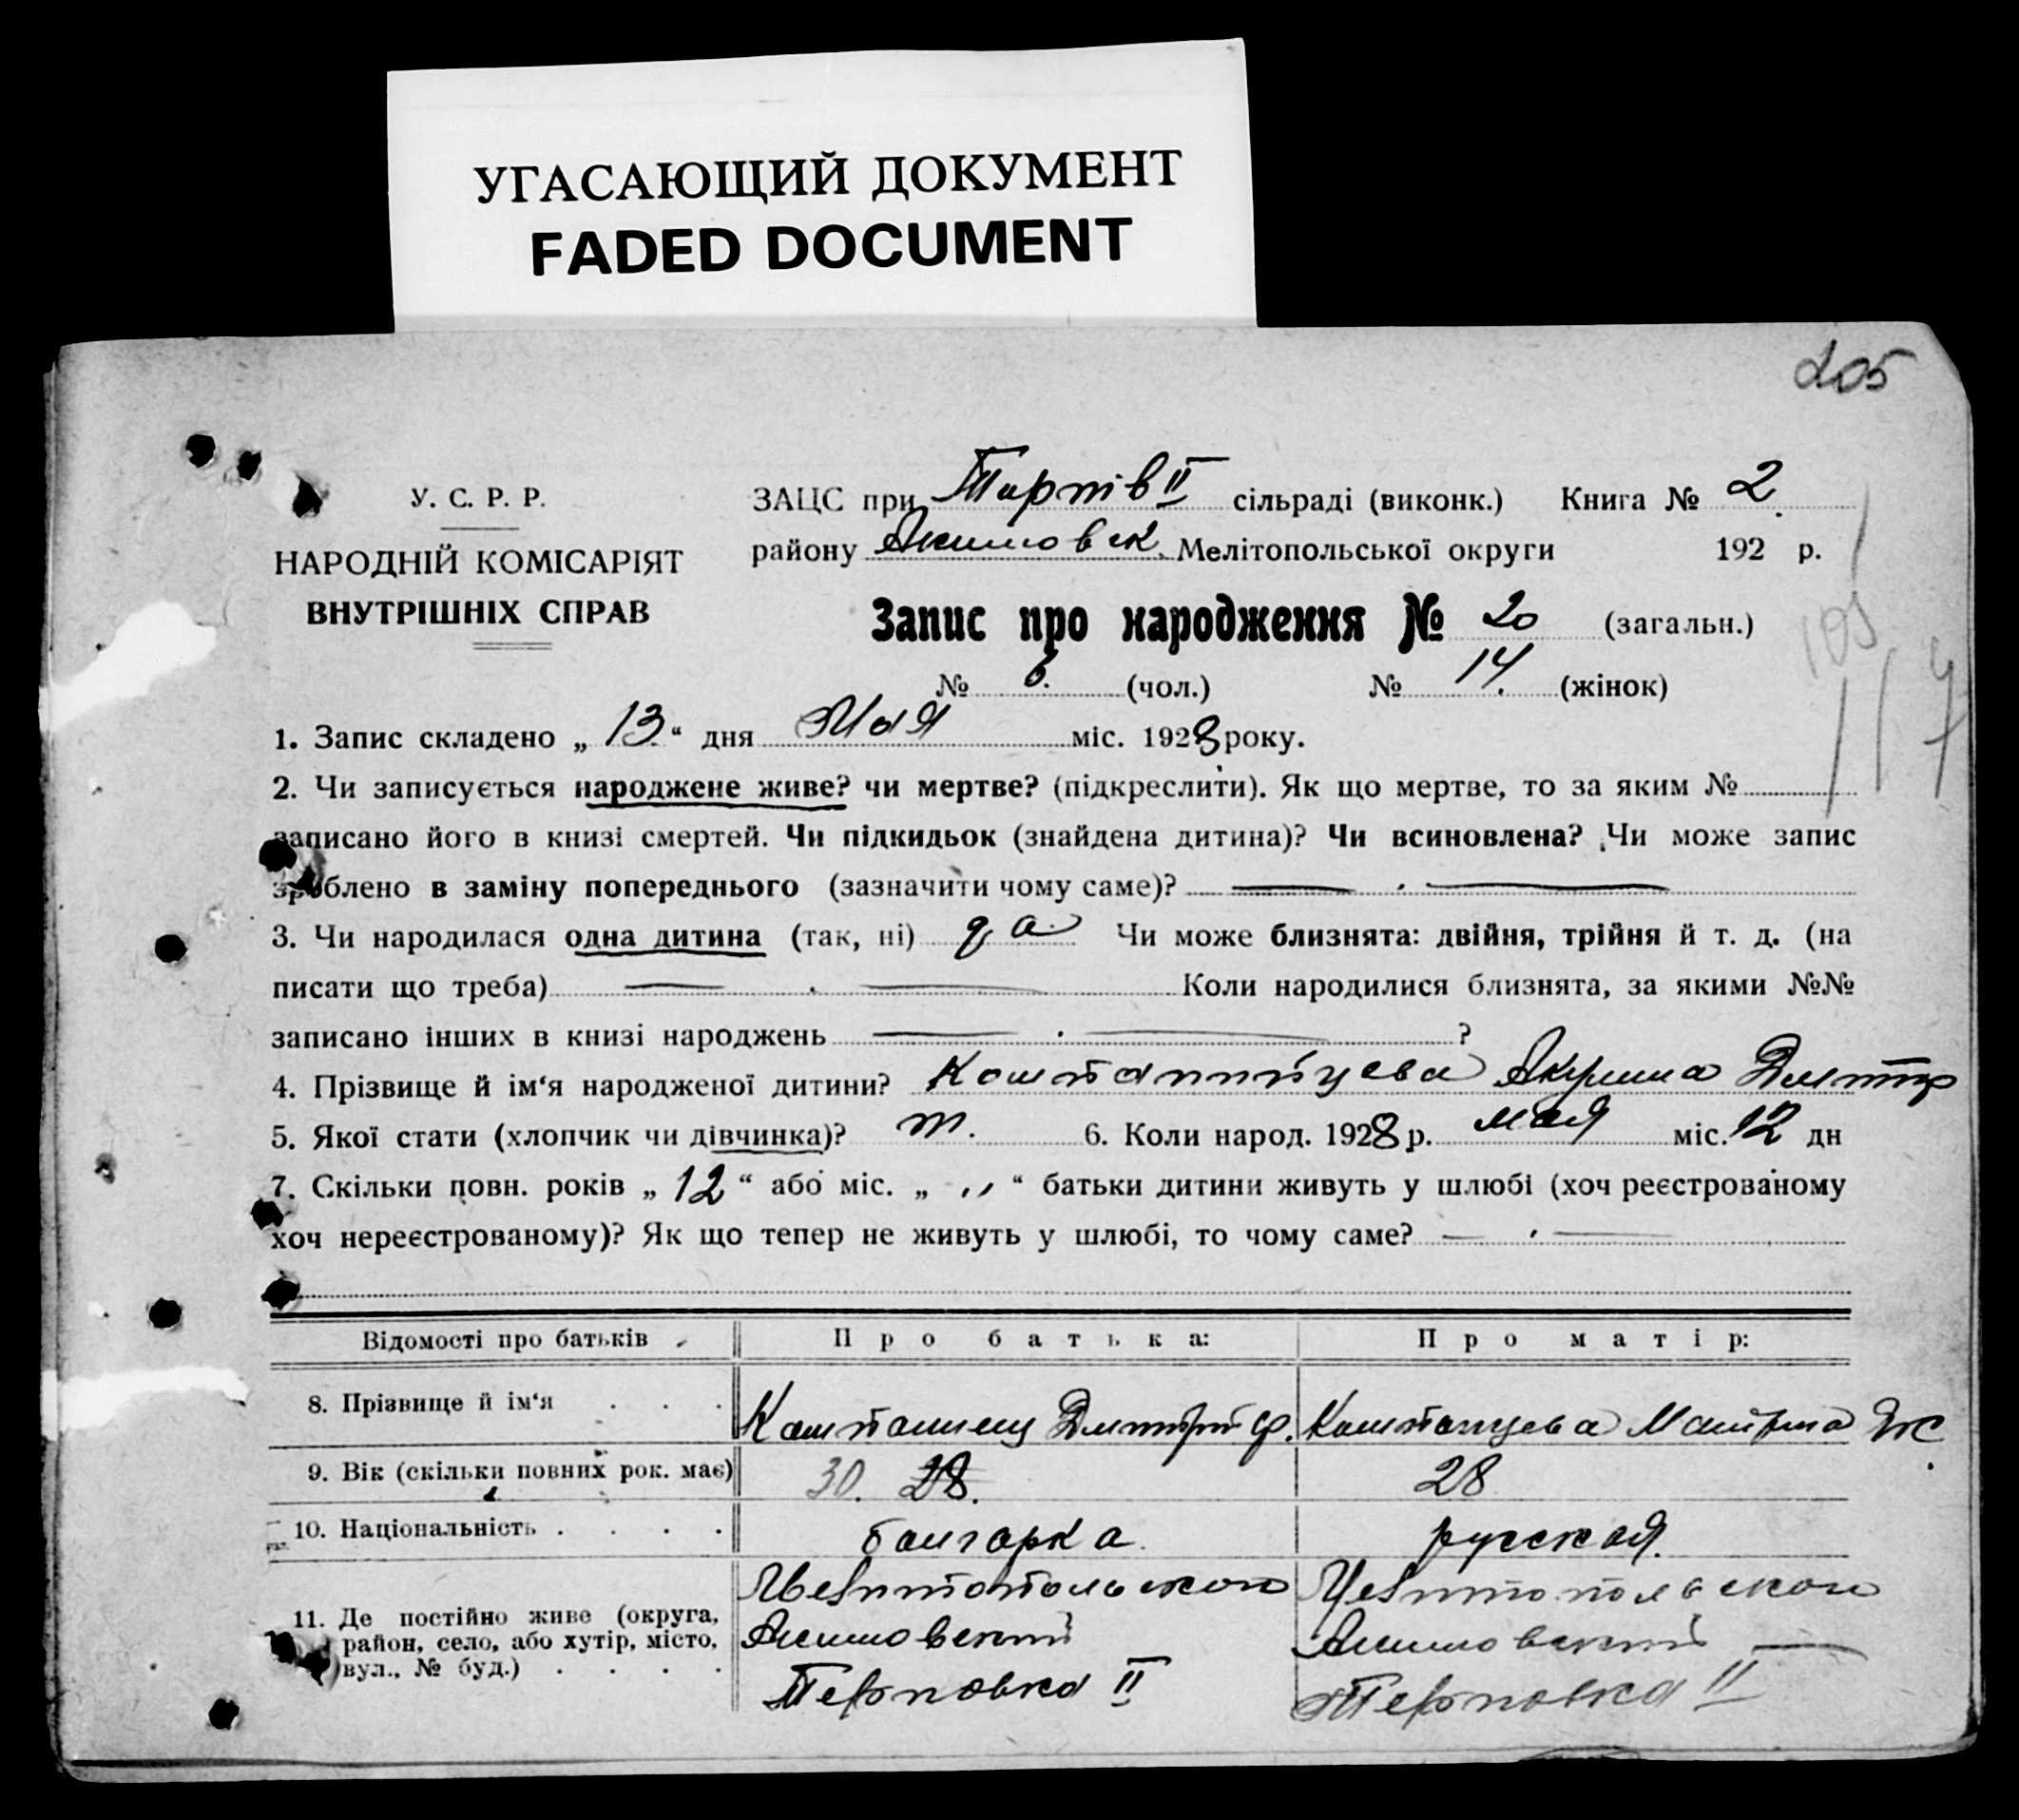 УГАСАЮЩИЙ ДОКУМЕНТ
FADED DOCUMENT
205
У. С. Р. Р.
НАРОДНІЙ КОМІСАРІЯТ
ВНУТРІШНІХ СПРАВ
ЗАЦС при II сільраді (виконк.) Книга № 2
району Акимовск. Мелітопольської округи 192 р.
Запис про народження № 20 (загальн.)
№ 6. (чол.) № 14. (жінок)
105
117
1. Запис складено „ 13 “ дня Мая міс. 1928 року.
2. Чи записується народжене живе? чи мертве? (підкреслити). Як що мертве, то за яким №
записано його в книзі смертей. Чи підкидьок (знайдена дитина)? Чи всиновлена? Чи може запис
зроблено в заміну попереднього (зазначити чому саме)?
3. Чи народилася одна дитина (так, ні) да Чи може близнята: двійня, трійня й т. д. (на
писати що треба) Коли народилися близнята, за якими №№
записано інших в книзі народжень ?
4. Прізвище й ім‘я народженої дитини?
5. Якої стати (хлопчик чи дівчинка)? 6. Коли народ. 1928 р. мая міс. 12 дн
7. Скільки повн. років „ 12 “ або міс. „ ,, “ батьки дитини живуть у шлюбі (хоч реєстрованому
хоч нереєстрованому)? Як що тепер не живуть у шлюбі, то чому саме?
Відомості про батьків Про батька: Про матір:
8. Прізвище й ім‘я
9. Вік (скільки повних рок. має) 30. 28. 28
10. Національність болгарка русская
11. Де постійно живе (округа,
район, село, або хутір, місто,
вул., № буд.)
Акимовский Акимовский
Терновка II Терновка II